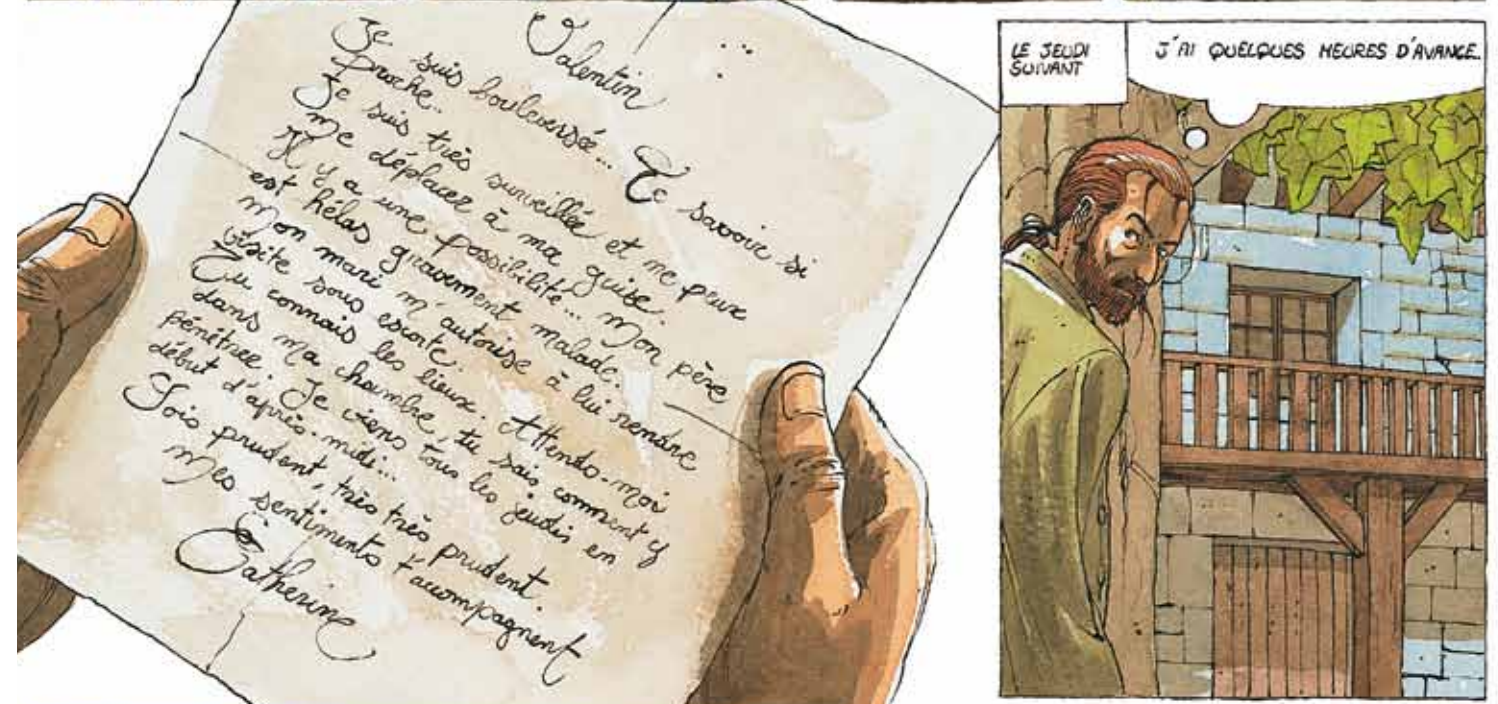 Valentin ...
Je suis bouleversée... Te savoir si
proche...
Je suis très surveillée et ne peux
me déplacer à ma guise.
Il y a une possibilité... Mon père
est hélas gravement malade.
Mon mari m'autorise à lui rendre
visite sous escorte.
Tu connais les lieux. Attends-moi
dans ma chambre, tu sais comment y
pénétrer. Je viens tous les jeudis en
début d'après-midi...
Sois prudent, très très prudent.
Mes sentiments t'accompagnent
Catherine
LE JEUDI
SUIVANT
J'AI QUELQUES HEURES D'AVANCE...